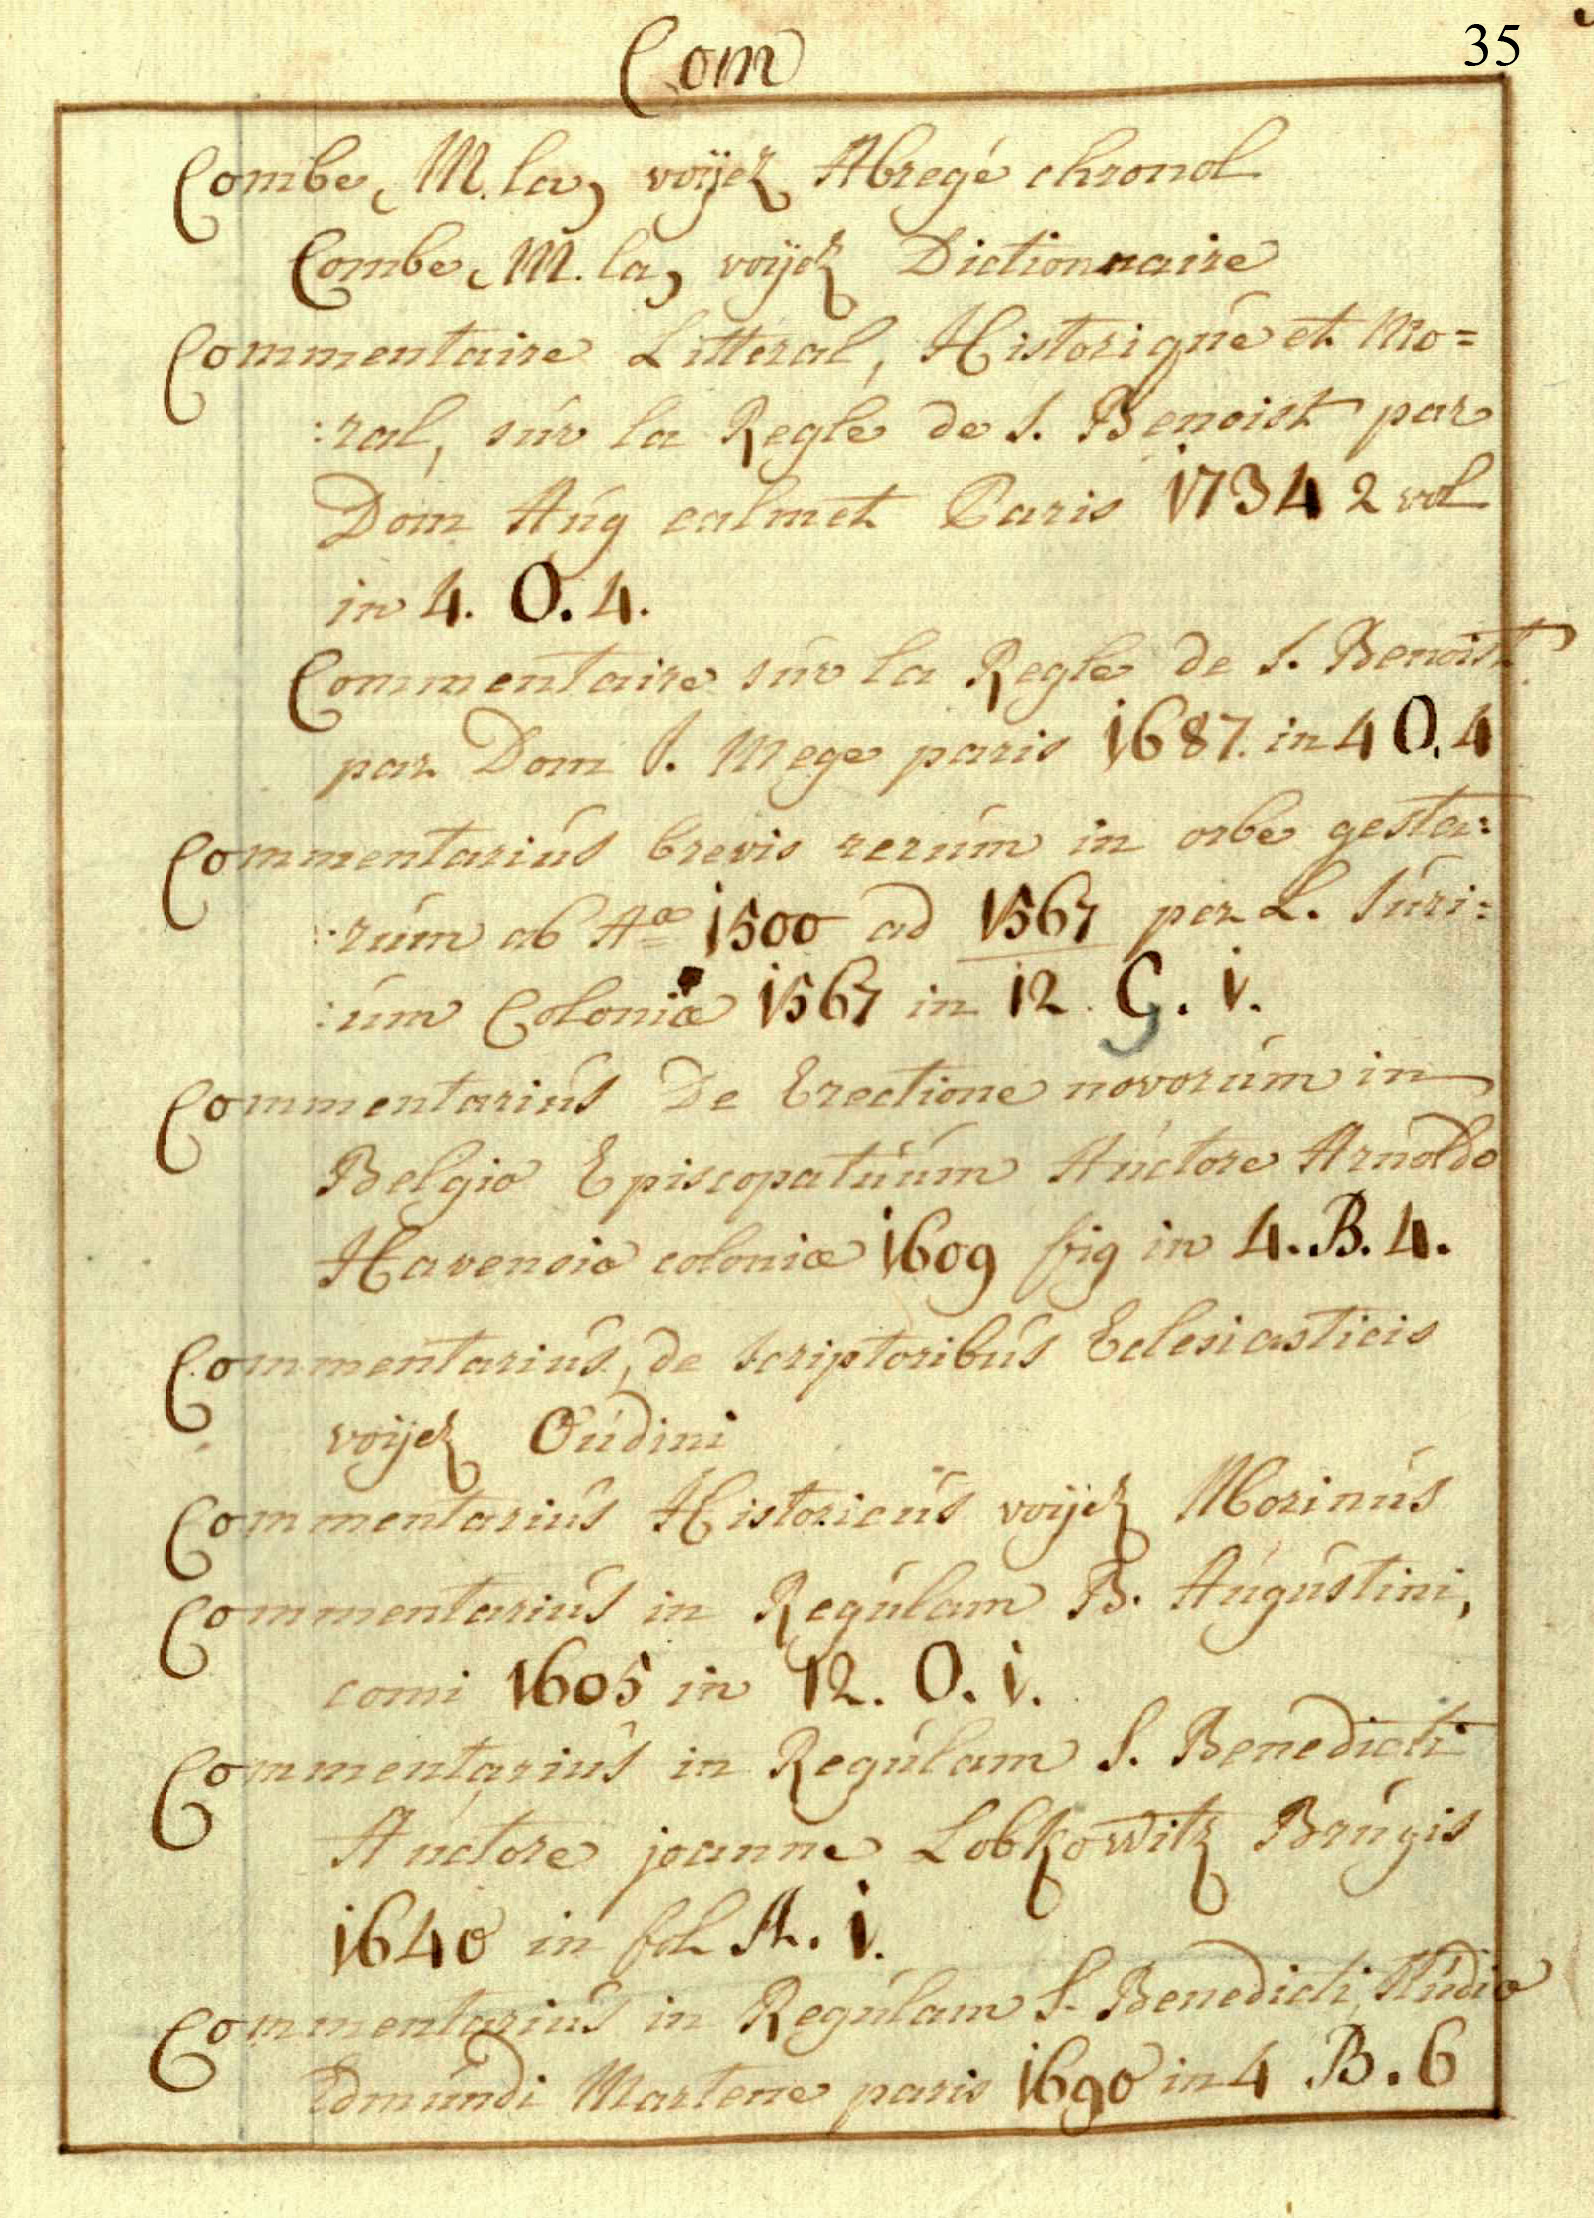 Com
35
Combe, M. la, voÿez Abregé chronol
Combe, M. la, voÿez Dictionnaire
Commentaire Litteral, Historique et Mo=
:ral, sur la Regle de S. Benoist par
Dom Aug calmet Paris 1734 2 vol
in 4. O. 4.
Commentaire sur la Regle de S. Benoist
par Dom J. Mege paris 1687. in 4 O. 4
Commentarius brevis rerum in orbe gesta:
:rum ab Aº 1500 ad 1567 per L. Suri:
:um Coloniæ 1567 in 12. G. i.
Commentarius De Erectione novorum in
Belgio Episcopatuum Auctore Arnoldo
Havensio coloniæ 1609 fig in 4. B. 4.
Commentarius, de scriptoribus Eclesiasticis
voijez Oudini
Commentarius Historicus voijez Morinus
Commentarius in Regulam B. Augustini,
comi 1605 in 12. O. i.
Commentarius in Regulam S. Benedicti
Auctore joanne Lobkowitz Brugis
1640 in fol A. i.
Commentarius in Regulam S. Benedicti, studio
Edmundi Martene paris 1690 in 4 B. 6